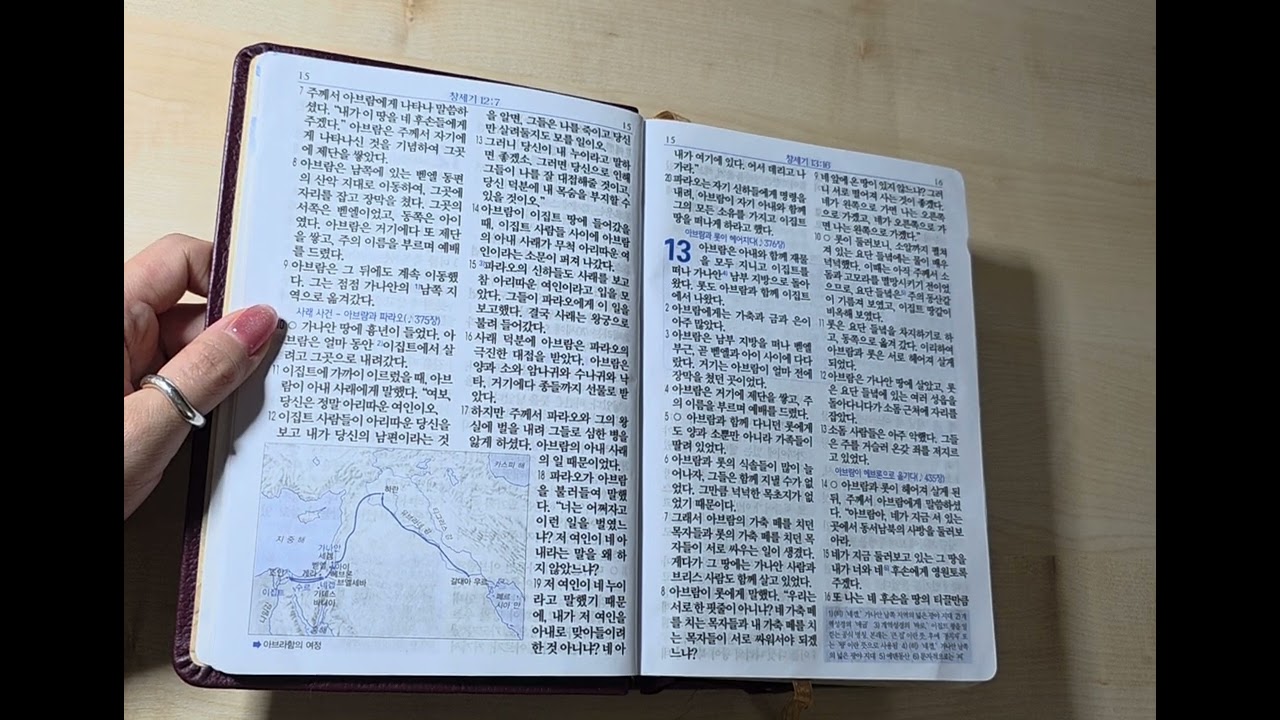 15
창세기 12:7
15
7 주께서 아브람에게 나타나 말씀하
셨다. "내가 이 땅을 네 후손들에게
주겠다." 아브람은 주께서 자기에
게 나타나신 것을 기념하여 그곳
에 제단을 쌓았다.
8 아브람은 남쪽에 있는 벧엘 동편
의 산악 지대로 이동하여, 그곳에
자리를 잡고 장막을 쳤다. 그곳의
서쪽은 벧엘이었고, 동쪽은 아이
였다. 아브람은 거기에다 또 제단
을 쌓고, 주의 이름을 부르며 예배
를 드렸다.
9 아브람은 그 뒤에도 계속 이동했
다. 그는 점점 가나안의 남쪽 지
역으로 옮겨갔다.
사래 사건 - 아브람과 파라오(♩375장)
10 ○ 가나안 땅에 흉년이 들었다. 아
브람은 얼마 동안 이집트에서 살
려고 그곳으로 내려갔다.
11 이집트에 가까이 이르렀을 때, 아브
람이 아내 사래에게 말했다. "여보,
당신은 정말 아리따운 여인이오,
12 이집트 사람들이 아리따운 당신을
보고 내가 당신의 남편이라는 것
을 알면, 그들은 나를 죽이고 당신
만 살려둘지도 모를 일이오.
13 그러니 당신이 내 누이라고 말하
면 좋겠소. 그러면 당신으로 인해
그들이 나를 잘 대접해줄 것이고,
당신 덕분에 내 목숨을 부지할 수
있을 것이오."
14 아브람이 이집트 땅에 들어갔을
때, 이집트 사람들 사이에 아브람
의 아내 사래가 무척 아리따운 여
인이라는 소문이 퍼져 나갔다.
15 파라오의 신하들도 사래를 보고
참 아리따운 여인이라고 입을 모
았다. 그들이 파라오에게 이 일을
보고했다. 결국 사래는 왕궁으로
불려 들어갔다.
16 사래 덕분에 아브람은 파라오의
극진한 대접을 받았다. 아브람은
양과 소와 암나귀와 수나귀와 낙
타, 거기에다 종들까지 선물로 받
았다.
17 하지만 주께서 파라오와 그의 왕
실에 벌을 내려 그들로 심한 병을
앓게 하셨다. 아브람의 아내 사래
의 일 때문이었다.
18 파라오가 아브람
을 불러들여 말했
다. "너는 어쩌자고
이런 일을 벌였느
냐? 저 여인이 네 아
내라는 말을 왜 하
지 않았느냐?
19 저 여인이 네 누이
라고 말했기 때문
에, 내가 저 여인을
아내로 맞아들이려
한 것 아니냐? 네 아
카스피 해
하란
유브라데 강
티그리스 강
지중해
가나안
세겜
벧엘
아이
헤브론
브엘세바
그랄
수르
네겝
가데스
바네아
이집트
홍해
갈대아 우르
페르
시아 만
➡ 아브라함의 여정
15
창세기 13:16
16
내가 여기에 있다. 어서 데리고 나
가라."
20 파라오는 자기 신하들에게 명령을
내려, 아브람이 자기 아내와 함께
그의 모든 소유를 가지고 이집트
땅을 떠나게 하라고 했다.
아브람과 롯이 헤어지다(♩376장)
13 아브람은 아내와 함께 재물
을 모두 지니고 이집트를
떠나 가나안 남부 지방으로 돌아
왔다. 롯도 아브람과 함께 이집트
에서 나왔다.
2 아브람에게는 가축과 금과 은이
아주 많았다.
3 아브람은 남부 지방을 떠나 벧엘
부근, 곧 벧엘과 아이 사이에 다다
랐다. 거기는 아브람이 얼마 전에
장막을 쳤던 곳이었다.
4 아브람은 거기에 제단을 쌓고, 주
의 이름을 부르며 예배를 드렸다.
5 ○ 아브람과 함께 다니던 롯에게
도 양과 소뿐만 아니라 가족들이
딸려 있었다.
6 아브람과 롯의 식솔들이 많이 늘
어나자, 그들은 함께 지낼 수가 없
었다. 그만큼 넉넉한 목초지가 없
었기 때문이다.
7 그래서 아브람의 가축 떼를 치던
목자들과 롯의 가축 떼를 치던 목
자들이 서로 싸우는 일이 생겼다.
게다가 그 땅에는 가나안 사람과
브리스 사람도 함께 살고 있었다.
8 아브람이 롯에게 말했다. "우리는
서로 한 핏줄이 아니냐? 네 가축 떼
를 치는 목자들과 내 가축 떼를 치
는 목자들이 서로 싸워서야 되겠
느냐?
9 네 앞에 온 땅이 있지 않느냐? 그러
니 서로 떨어져 사는 것이 좋겠다.
네가 왼쪽으로 가면 나는 오른쪽
으로 가겠고, 네가 오른쪽으로 가
면 나는 왼쪽으로 가겠다."
10 ○ 롯이 둘러보니, 소알까지 펼쳐
져 있는 요단 들녘에는 물이 매우
넉넉했다. 이때는 아직 주께서 소
돔과 고모라를 멸망시키기 전이었
으므로, 요단 들녘은 주의 동산같
이 기름져 보였고, 이집트 땅같이
비옥해 보였다.
11 롯은 요단 들녘을 차지하기로 하
고, 동쪽으로 옮겨 갔다. 이리하여
아브람과 롯은 서로 헤어져 살게
되었다.
12 아브람은 가나안 땅에 살았고, 롯
은 요단 들녘에 있는 여러 성읍을
돌아다니다가 소돔 근처에 자리를
잡았다.
13 소돔 사람들은 아주 악했다. 그들
은 주를 거슬러 온갖 죄를 저지르
고 있었다.
아브람이 헤브론으로 옮기다(♩435장)
14 ○ 아브람과 롯이 헤어져 살게 된
뒤, 주께서 아브람에게 말씀하셨
다. "아브람아, 네가 지금 서 있는
곳에서 동서남북의 사방을 둘러보
아라.
15 네가 지금 둘러보고 있는 그 땅을
내가 너와 네 후손에게 영원토록
주겠다.
16 또 나는 네 후손을 땅의 티끌만큼